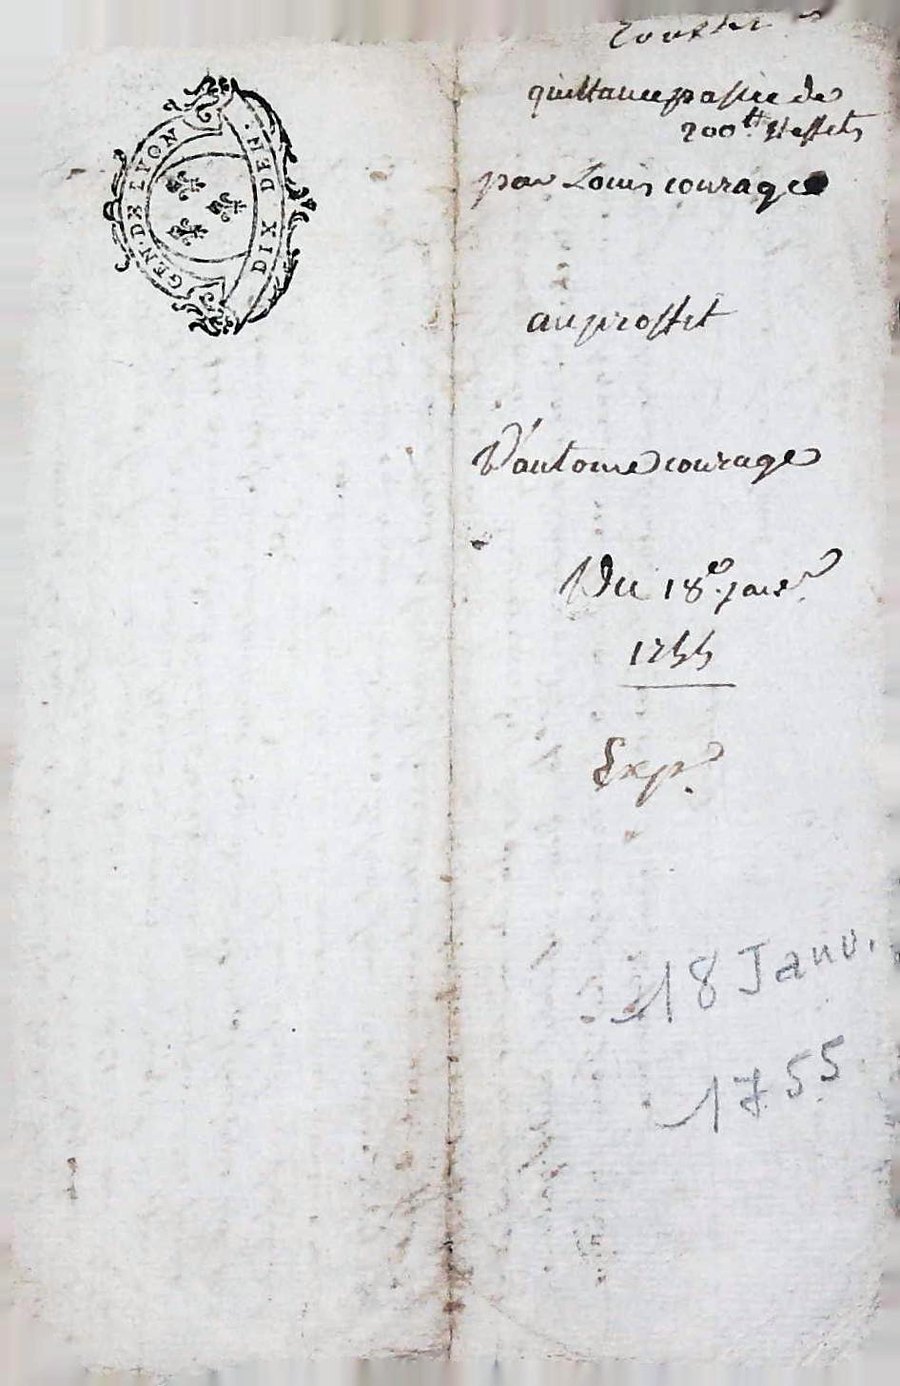 GEN. DE LYON
DIX DEN.
quittance passée de
200ᵗᵗ & effets
par Louis courage
au proffit
D'antoine courage
Du 18ᵉ. janᵉʳ.
1755
Expᵉ.
18 Janv.
1755